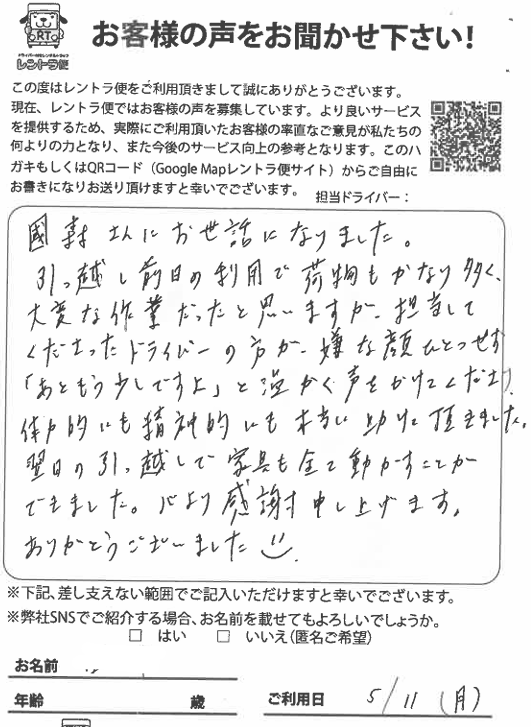 RT
ドライバー付きレンタルトラック
レントラ便
お客様の声をお聞かせ下さい!
この度はレントラ便をご利用頂きまして誠にありがとうございます。
現在、レントラ便ではお客様の声を募集しています。より良いサービス
を提供するため、実際にご利用頂いたお客様の率直なご意見が私たちの
何よりの力となり、また今後のサービス向上の参考となります。このハ
ガキもしくはQRコード（Google Mapレントラ便サイト）からご自由に
お書きになりお送り頂けますと幸いでございます。
担当ドライバー：
國森さんにお世話になりました。
引っ越し前日の利用で荷物もかなり多く、
大変な作業だったと思いますが、担当して
くださったドライバーの方が、嫌な顔ひとつせず
「あともう少しですよ」と温かく声をかけてくださり、
体力的にも精神的にも本当に助けて頂きました。
翌日の引っ越しで家具も全て動かすことが
できました。心より感謝申し上げます。
ありがとうございました
※下記、差し支えない範囲でご記入いただけますと幸いでございます。
※弊社SNSでご紹介する場合、お名前を載せてもよろしいでしょうか。
□ はい □ いいえ(匿名ご希望)
お名前
年齢 歳 ご利用日 5/11（月）